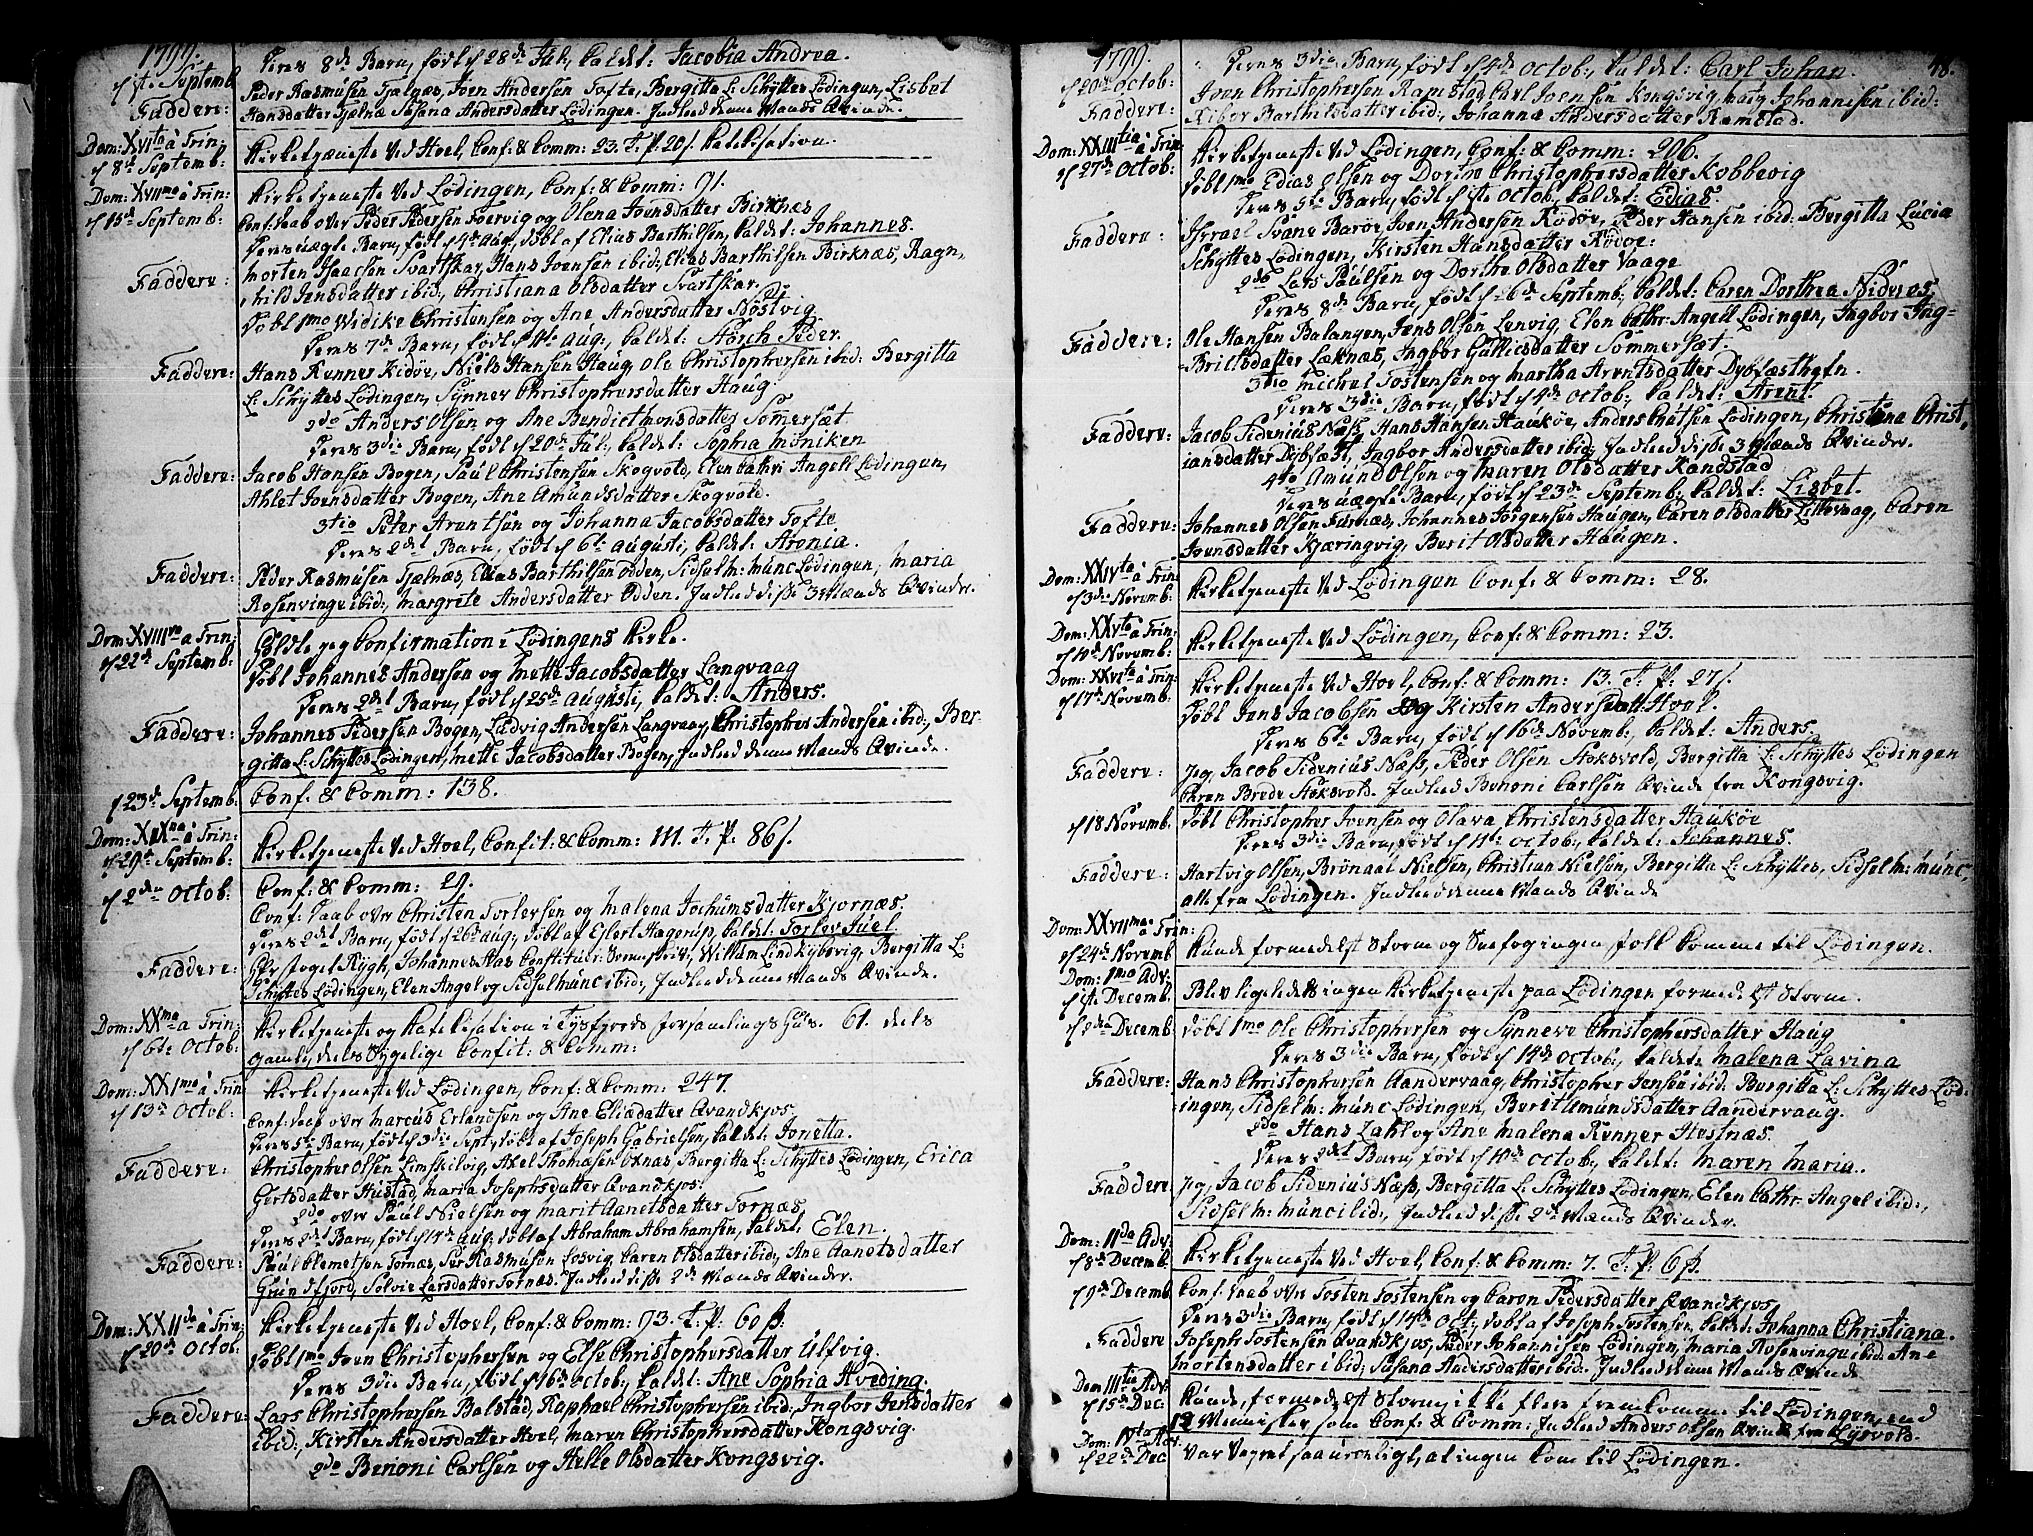 1799.
d 1ste Septemb. Deres 8de Barn, født d 28de Jul. kaldet: Jacobia Andrea.
Faddere: Peder Rasmusen Tjælnæs, Joen Andersen Tofte, Bergitta L: Schyttes Lødingen, Lisbet
Hansdatter Tjælnæ Susana Andersdatter Lødingen. Indled denne Mands Qvinde.
Dom: XVIta à Trin: d 8de Septemb: Kirketjeneste ved Hoel, Conf: & Comm: 23. T. P. 20/. Catechisation.
Dom: XVIIma à Trin: d 15de Septemb: Kirketjeneste ved Lødingen, Conf: & Comm: 91.
Conf: Daab over Peder Pedersen Foervig og Olena Joensdatter Birknæs
Deres uægte Barn, født d 4de Aug., døbt af Elias Barthilsen, kaldet: Johannes.
Faddere: Morten Isacsen Svartskar, Hans Joensen ibid:, Elias Barthilsen Birknæs, Ragn,
hild Jensdatter ibid:, Christiana Olsdatter Svartskar.
Døbt 1mo Widike Christensen og Ane Andersdatter Nøstvig
Deres 7de Barn, født d 11te Aug., kaldet: Storch Peder.
Faddere: Hans Renner Kidøe, Niels Hansen Haug, Ole Christophersen ibid: Bergitta
L: Schyttes Lødingen, Synnev Christophersdatter Haug
2do Anders Olsen og Ane Bendicthmonsdatter Somersæt
Deres 3die Barn, født d 20de Jul: kaldet: Sophia Møniken
Faddere: Jacob Hansen Bogen, Paul Christensen Skogvold, Elen Cathri Angell Lødingen,
Ahlet Joensdatter Bogen, Ane Amundsdatter Skogvold.
3tio Peter Arentsen og Johanna Jacobsdatter Tofte
Deres 2det Barn, født d 6te Augusti, kaldet: Aronia.
Faddere: Peder Rasmusen Tjælnæs, Elias Barthilsen Odden, Sidsel M: Munc Lødingen, Maria
Rosenvinge ibid:, Margrete Andersdatter Odden. Indled disse 3 Mænds Qvinder.
Dom: XVIIIva à Trin: d 22de Septemb: Holdte jeg Confirmation i Lødingens Kirke.
Døbt Johannes Andersen og Mette Jacobsdatter Langvaag
Deres 2det Barn, født d 25de Augusti, kaldet: Anders.
Faddere: Johannes Pedersen Bogen, Ludvig Andersen Langvaag, Christopher Andersen ibid:, Ber-
gitta L: Schyttes Lødingen, Mette Jacobsdatter Bogen, Indled denne Mands Qvinde.
d 23de Septemb: Conf: & Comm: 138.
Dom: XIXna à Trin: d 29de Septemb: Kirketjeneste ved Hoel, Confit: & Comm: 111. T. P. 86/.
d 2den Octob: Conf: & Comm: 29.
Conf: Daab over Christen Torlersen og Malena Jochumsdatter Kjornæs.
Deres 2det Barn, født d 26de Aug:, døbt af Eilert Hagerup, kaldet: Torlev Juel
Faddere: Hr: Foget Rygh, Johannes Aas Constituer: Sorenskriver, William Lind Kjøbevig, Bergitta L:
Schyttes Lødingen, Elen Angel og Sidsel Munc ibid:, Indled denne Mands Qvinde.
Dom: XXma à Trin: d 6te Octob: Kirketjeneste og Catekisation i Tysfjords Forsamlings Huus. 61. deels
gamle, deels sygelige Confit: & Comm:
Dom: XXIma à Trin d 13de Octob: Kirketjeneste ved Lødingen, Conf: & Comm: 247.
Conf: Daab over Marcus Erlandsen og Ane Eliædatter Qvandkjos.
Deres 5te Barn, født d 3die Sept., døbt af Joseph Gabrielsen, kaldet: Jonetta.
Faddere: Christopher Olsen Limskilvig, Axel Thomæsen Oxnæs, Bergitta L: Schyttes Lødingen, Erica
Gertsdatter Hustad, Maria Josephsdatter Qvandkjos:
2do over Paul Nielsen og Marit Aanetsdatter Tornæs
Deres 2det Barn, født d 14de Aug: døbt af Abraham Abrahamsen, kaldet: Elen.
Faddere: Paul Clemetsen Tornæs, Per Rasmusen Losvig, Caren Olsdatter ibid:, Ane Aanetsdatter
Grundfjord, Solvie Larsdatter Tornæs. Indled disse 2de Mænds Qvinder.
Dom: XXIIda à Trin: d 20de Octob: Kirketjeneste ved Hoel, Conf: & Comm: 73. T. P: 60 ß.
Døbt 1mo Joen Christophersen og Else Christophersdatter Ulfvig.
Deres 3die Barn, født d 16de Octob:, kaldet: Ane Sophia Hveding.
Faddere: Lars Christophersen Balstad, Raphael Christophersen ibid:, Ingbor Jensdatter
ibid:, Kirsten Andersdatter Hoel, Maren Christophersdatter Kongsvig.
2do Benoni Carlsen og Helle Olsdatter Kongsvig.
1799. 48.
d 20de Octob: Deres 3die Barn, født d 4de Octob:, kaldet: Carl Johan.
Faddere: Joen Christophersen Ramstad, Carl Joensen Kongsvig, Mats Johannisen ibid:
Kibor Barthildsdatter ibid:, Johanna Andersdatter Ramstad.
Dom: XXIIItia à Trin: d 27de Octob: Kirketjeneste ved Lødingen, Conf: & Comm: 206.
Døbt 1mo Edias Olsen og Dorthe Christophersdatter Kobbevig
Deres 5te Barn, født d 1ste Octob, kaldet: Edias.
Faddere: Israel Svane Barøe, Joen Andersen Rødøe, Peder Hansen ibid: Bergitta Lucia
Schyttes Lødingen, Kirsten Hansdatter Rødøe:
2do Lars Paulsen og Dorthe Olsdatter Vaage
Deres 8de Barn, født d 26de Septemb:, kaldet: Caren Dorthea Nideros.
Faddere: Ole Hansen Balangen, Jens Olsen Lenvig, Elen Cathr: Angell Lødingen, Ingbor Ing-
Brictsdatter Læknæs, Ingbor Gullicsdatter Sommersæt.
3tio Michel Tostensen og Martha Arentsdatter Dybfæsthøfn.
Deres 3die Barn, født d 4de Octob:, kaldet: Arent.
Faddere: Jacob Sidenius Næss, Hans Hansen Haukøe, Anders Knutsen Lødingen, Christina Christ,
jansdatter Dybfæst, Ingbor Andersdatter ibid:, Indled disse 3 Mænds Qvinder.
4to Amund Olsen og Maren Olsdatter Kandstad
Deres uægte Barn, født d 23de Septemb:, kaldet: Lisbet.
Faddere: Johannes Olsen Furnæs, Johannes Jørgensen Haugen, Caren Olsdatter Lillevaag, Caren
Joensdatter Kjæringvig, Berit Olsdatter Haugen.
Dom: XXIVta à Trin: d 3die Novemb: Kirketjeneste ved Lødingen Conf: & Comm: 28.
Dom: XXVta à Trin: d 10de Novemb: Kirketjeneste ved Lødingen, Conf: & Comm: 23.
Dom: XXVIta à Trin: d 17de Novemb: Kirketjeneste ved Hoel, Conf: & Comm: 13. T. P: 27/.
Døbt Jens Jacobsen og Kirsten Andersdatt: Hoel.
Deres 6te Barn, født d 16de Novemb:, kaldet: Anders.
Faddere: Jeg, Jacob Sidenius Næss, Peder Olsen Stoksvold, Bergitta L: Schyttes Lødingen
Ehren Brede Stoksvold. Indled Benoni Carlsen Qvinde fra Kongsvig.
d 18 Novemb: Døbt Christopher Joensen og Olava Christensdatter Haukøe
Deres 3die Barn, født d 11te Octob:, kaldet: Johannes.
Faddere: Hartvig Olsen, Brønaal Nielsen, Christian Nielsen, Bergitta L: Schyttes, Sidsel M: Munc,
alle fra Lødingen. Indled denne Mands Qvinde
Dom: XXVIIma à Trin: d 24de Novemb Kunde formedelst Storm og Snefog ingen Folk komme til Lødingen.
Dom: 1ma Adv: d 1ste Decemb: Blev ligeledes ingen Kirketjeneste paa Lødingen formedelst Storm.
d 2den Decemb: Døbt 1mo Ole Christophersen og Synneve Christophersdatter Haug
Deres 3die Barn, født d 14de Octob:, kaldet: Malena Lavina
Faddere: Hans Christophersen Aandervaag, Christopher Jensen ibid: Bergitta L: Schyttes Lød:
ingen, Sidsel M: Munc Lødingen, Berit Amundsdatter Aandervaag.
2do Hans Lahl og Ane Malena Renner Hestnæs.
Deres 2det Barn, født d 10de Octob:, kaldet: Maren Maria.
Faddere Jeg, Jacob Sidenius Næss, Bergitta L: Schyttes Lødingen, Elen Cathr: Angel ibid:,
Sidsel M: Munc ibid:, Indled disse 2de Mænds Qvinder.
Dom: IIda Adv: d 8de Decemb: Kirketjeneste ved Hoel, Conf: & Comm: 7. T. P: 6 ß.
d 9de Decemb: Conf: Daab over Tosten Tostensen og Caren Pedersdatter Qvandkjos
Deres 3die Barn, født d 14de Oct:, døbt af Joseph Tostensen, kaldet: Johanna Christiana.
Faddere Joseph Tostensen Qvandkjos, Peder Johannisen Lødingen, Maria Rosenvinge ibid: Ane
Mortensdatter ibid:, Susana Andersdatter ibid:. Indled denne Mands Qvinde
Dom IIItia Adv: d 15de Dec: Kunde, formedelst Storm, ikke flere fremkomme til Lødingen, end
12 Mennisker, som Conf: & Comm: Indled Anders Olsen Qvinde fra Lysvold.
Dom: IVta Adv: d 22de Dec: Var Vejret saa urenligt, at ingen kom til Lødingen.